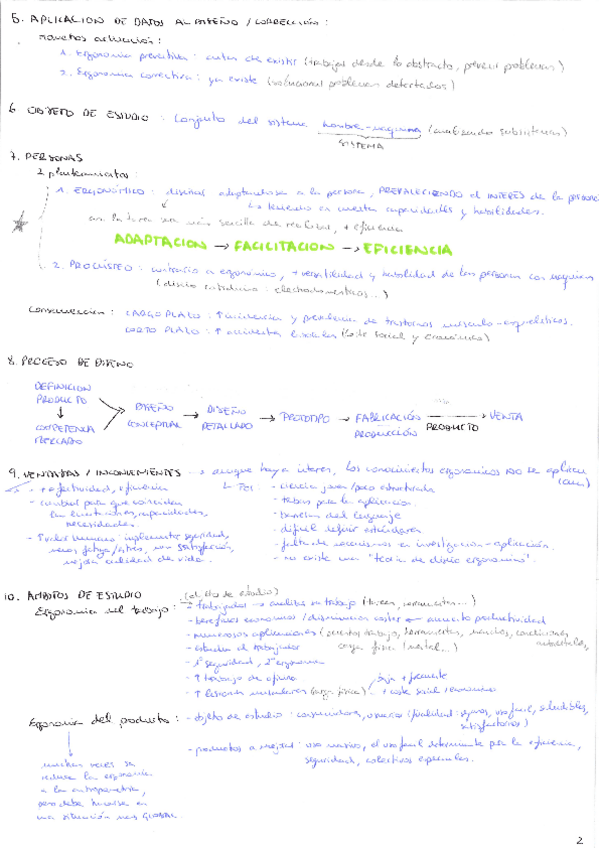 5. APLICACION DE DATOS AL DISEÑO / CORRECCIÓN :
momentos actuación :
1. Ergonomía preventiva : antes de existir (trabajar desde lo abstracto, prevenir problemas)
2. Ergonomía correctiva : ya existe (solucionar problemas detectados)
6 OBJETO DE ESTUDIO : Conjunto del sistema hombre-máquina (analizando subsistemas)
SISTEMA
7. PERSONAS
2 planteamientos :
1. ERGONÓMICO : diseñar adaptándose a la persona, PREVALECIENDO el INTERÉS de la persona
basado en nuestra capacidades y habilidades.
la tarea sea más sencilla de realizar, + eficiencia
ADAPTACION → FACILITACION → EFICIENCIA
2. PROCÚSTEO : contrario a ergonómico, + versatilidad y habilidad de las personas con máquinas
(diseño : electrodomésticos...)
Consecuencias : LARGO PLAZO : ↑ incidencia y prevalencia de trastornos músculo-esqueléticos.
CORTO PLAZO : ↑ accidentes laborales (coste social y económico)
8. PROCESO DE DISEÑO
DEFINICION PRODUCTO
↓
COMPETENCIA MERCADO
→ DISEÑO CONCEPTUAL → DISEÑO DETALLADO → PROTOTIPO → FABRICACIÓN PRODUCCIÓN → PRODUCTO VENTA
9. VENTAJAS / INCONVENIENTES → aunque haya interés, los conocimientos ergonómicos NO se aplican
- + efectividad, eficiencia
- para que coincidan
las limitaciones, capacidades,
necesidades.
- Valor humano : implementar seguridad,
menos fatiga/estrés, satisfacción,
mejora calidad de vida.
- ciencia joven/poco estructurada
- trabas para la aplicación.
- barreras del lenguaje
- difícil definir estándares
- falta de mecanismos en investigación - aplicación.
- no existe una "teoría de diseño ergonómico".
10. AMBITOS DE ESTUDIO (objeto de estudio)
Ergonomía del trabajo : - trabajador → analiza su trabajo (tareas, herramientas...)
- beneficios económicos / disminución costes → aumento productividad
- numerosas aplicaciones (puestos trabajo, herramientas, condiciones ambientales,
- estudia al trabajador carga física (mental...)
- 1º seguridad, 2º ergonomía
- ↑ trabajo de oficina
- ↑ lesiones musculares (carga física) + coste social/económico
baja + frecuente
Ergonomía del producto : - objeto de estudio : consumidores, usuarios (finalidad : seguros, uso fácil, saludables,
satisfactorios)
- productos a mejorar : uso masivo, el uso fácil determinante para la eficiencia,
seguridad, colectivos especiales.
muchas veces se
reduce la ergonomía
a la antropometría,
pero debe basarse en
una situación más GLOBAL.
2